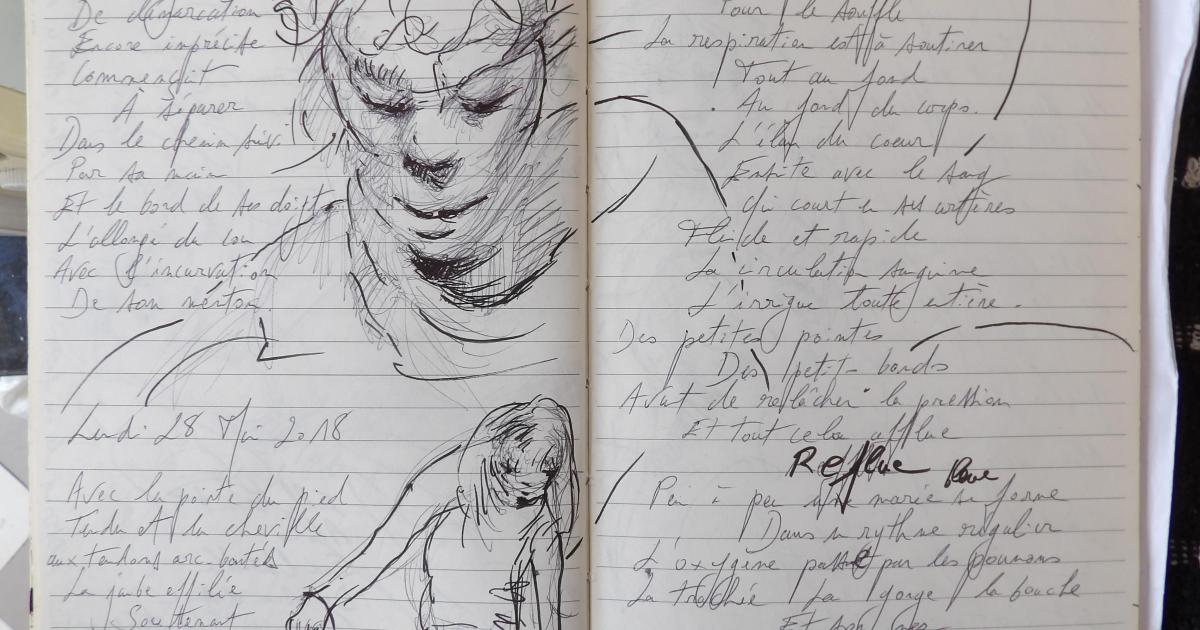 De démarcation
Encore imprécise
Commençait
À séparer
Dans le chemin suivi
Par sa main
Et le bord de ses doigts
L'allongé du cou
Avec l'incurvation
De son menton.
Lundi 28 Mai 2018
Avec la pointe du pied
Tendu et la cheville
aux tendons arc-boutés
La jambe effilée
Soutenant
Pour le souffle
La respiration est à soutirer
Tout au fond
Au fond du corps.
L'élan du coeur
Ensuite avec le sang
Qui court en ses artères
Fluide et rapide
La circulation sanguine
L'irrigue toute entière.
Des petites pointes
Des petits bonds
Avant de relâcher la pression
Et tout cela afflue
Reflue
Peu à peu une marée se forme
Dans un rythme régulier
L'oxygène passe par les poumons
La trachée La gorge la bouche
Et son nez